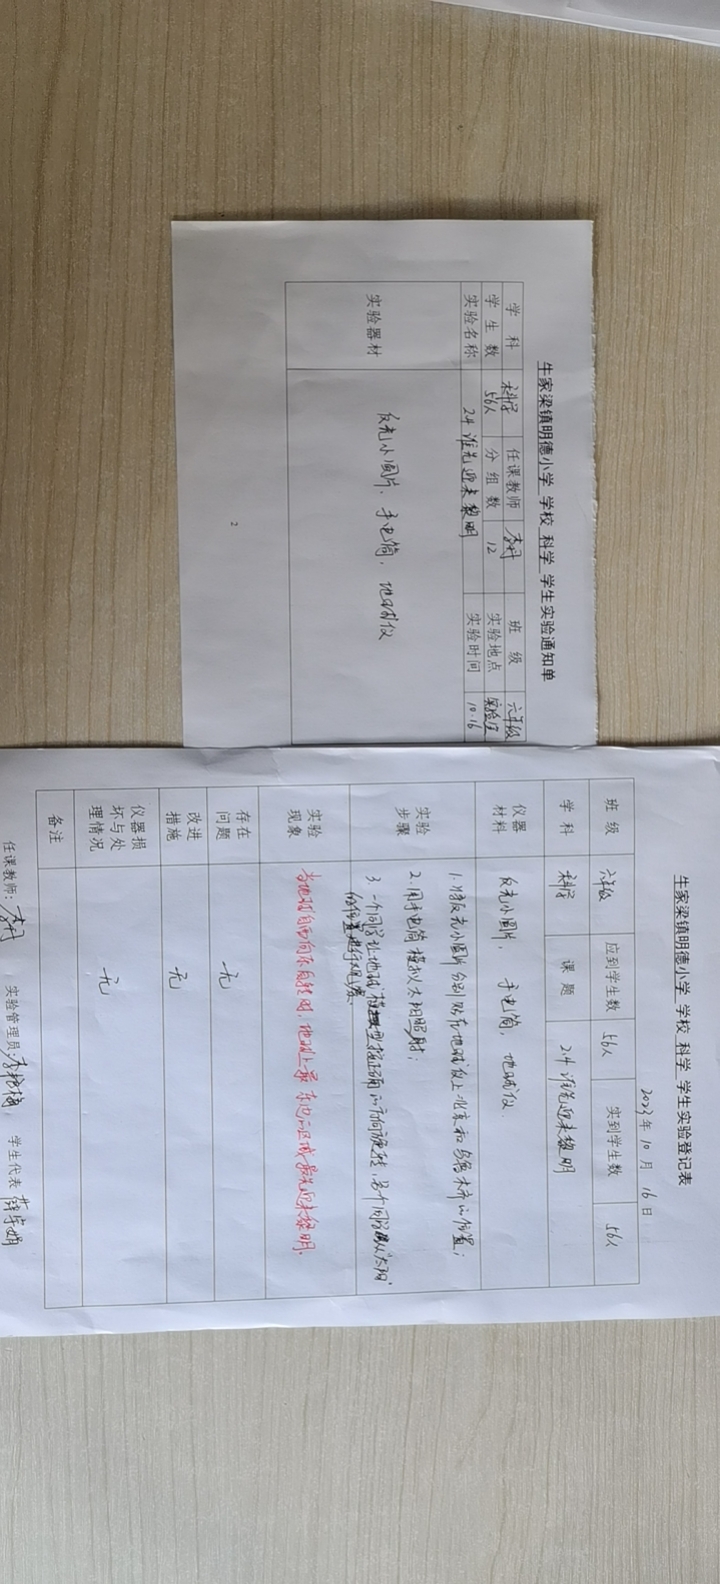 牛家梁镇明德小学 学校 科学 学生实验通知单
学科 科学 任课教师 班级 六年级
学生数 56人 分组数 12 实验地点 实验室
实验名称 2.4 谁先迎来黎明 实验时间 10.16
实验器材 反光小圆片、手电筒、地球仪
2
牛家梁镇明德小学 学校 科学 学生实验登记表
2023年10月16日
班级 六年级 应到学生数 56人 实到学生数 56人
学科 科学 课题 2.4 谁先迎来黎明
仪器材料 反光小圆片、手电筒、地球仪
实验步骤 1.将反光小圆片分别贴在地球仪上北京和乌鲁木齐的位置；
2.用手电筒模拟太阳照射；
3.一个同学让地球模型按正确的方向旋转，另个同学从“太阳”
的位置进行观察。
实验现象 当地球自西向东自转时，地球上最东边的区域最先迎来黎明。
存在问题 无
改进措施 无
仪器损坏与处理情况 无
备注
任课教师： 实验管理员 学生代表